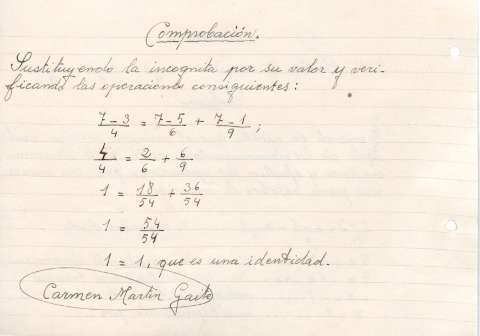 Comprobación.
Sustituyendo la incognita por su valor y veri-
ficando las operaciones consiguientes:
7-3/4 = 7-5/6 + 7-1/9;
4/4 = 2/6 + 6/9
1 = 18/54 + 36/54
1 = 54/54
1 = 1, que es una identidad.
Carmen Martín Gaite